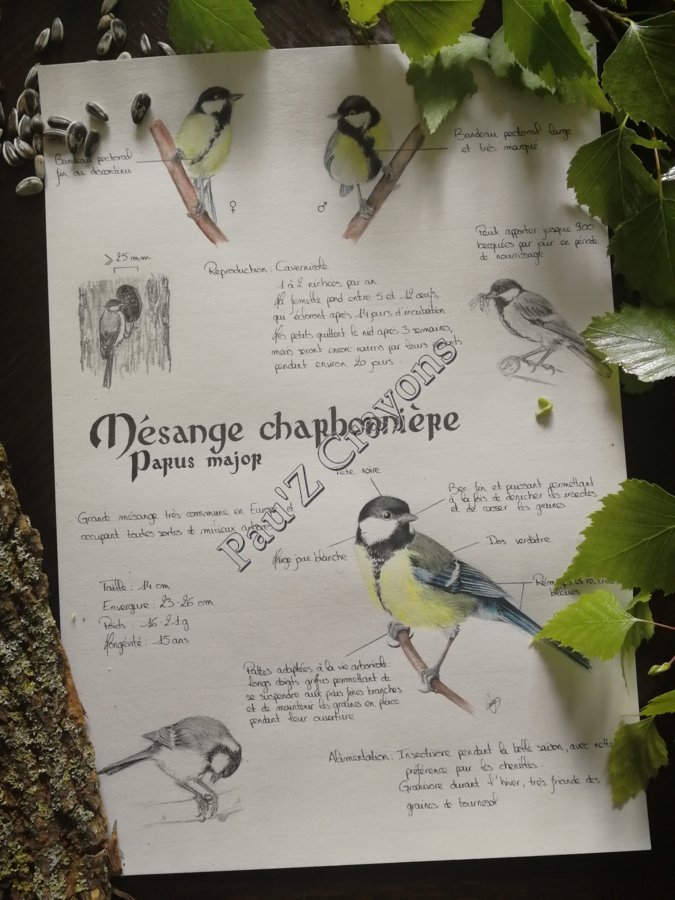 Bandeau pectoral
fin ou discontinu
♀
♂
Bandeau pectoral large
et très marqué
Peut apporter jusque 900
becquées par jour en période
de nourrissage
⩾ 25 mm
Reproduction : Cavernicole
1 à 2 nichées par an
La femelle pond entre 5 et 12 œufs,
qui écloront après 14 jours d'incubation
Les petits quittent le nid après 3 semaines,
mais seront encore nourris par leurs parents
pendant environ 20 jours.
Mésange charbonnière
Parus major
Pau'Z Crayons
Tête noire
Bec fin et puissant permettant
à la fois de dénicher les insectes
et de casser les graines
Grande mésange très commune en Europe et
occupant toutes sortes de milieux arborés
Large joue blanche
Dos verdâtre
Rémiges et
bleues
Taille : 14 cm
Envergure : 23-26 cm
Poids : 16-21g
Longévité : 15 ans
Pattes adaptées à la vie arboricole :
longs doigts griffus permettant de
se suspendre aux plus fines branches
et de maintenir les graines en place
pendant leur ouverture
Alimentation : Insectivore pendant la belle saison, avec nette
préférence pour les chenilles.
Granivore durant l'hiver, très friande des
graines de tournesol